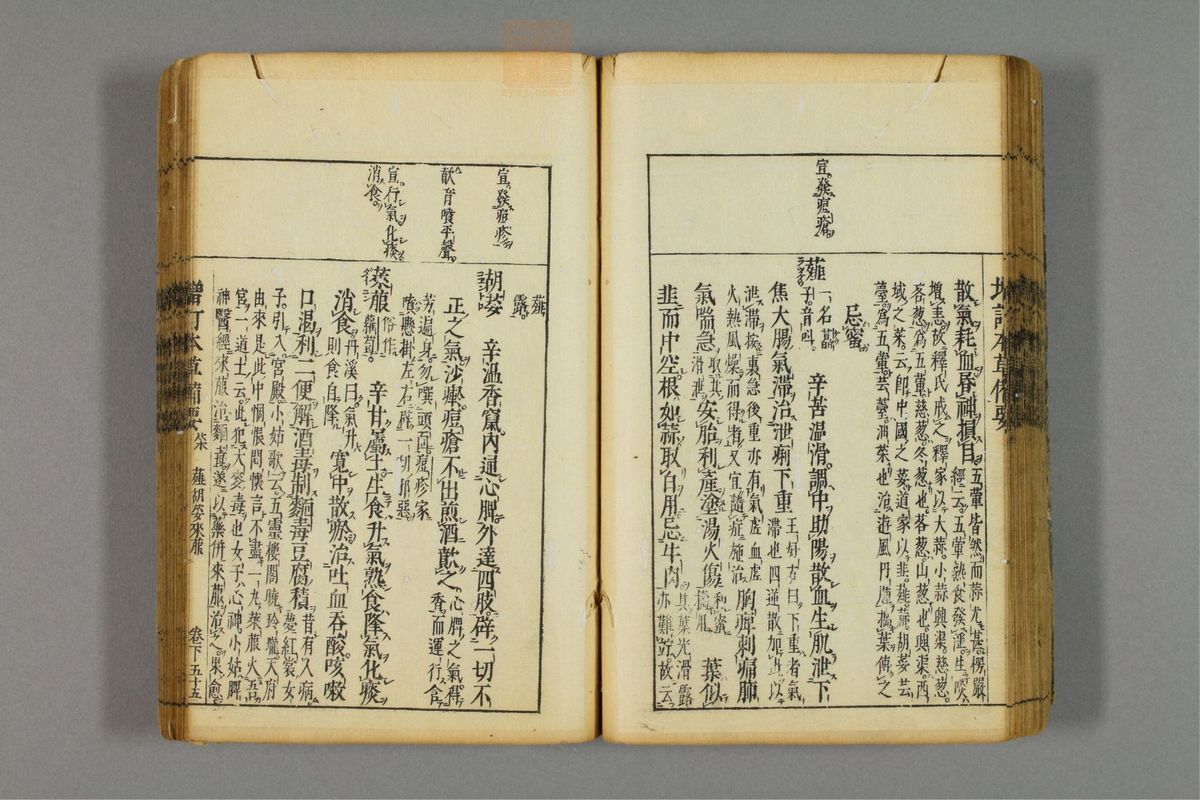 宜發痘瘡
散氣耗血昏神損目五葷皆然而蒜尤甚楞嚴經云五葷熟食發淫生啖
增恚故釋氏戒之釋家以大蒜小蒜興渠慈葱
茖葱爲五葷慈葱冬葱也茖葱山葱也興渠西
域之菜云卽中國之荽道家以韭薤蒜胡荽芸
薹爲五葷芸薹油菜也治遊風丹腫擣葉傅之
忌蜜
薤一名藠子音叫辛苦温滑調中助陽散血生肌泄下
焦大腸氣滯治泄痢下重王好古曰下重者氣滯也四逆散加此以
泄滯按裏急後重亦有氣虛血虛
火熱風燥而得者又宜隨症施治胸痹刺痛肺
氣喘急取其滑泄安胎利產塗湯火傷和蜜擣用葉似
韭而中空根如蒜取白用忌牛肉其葉光滑露亦難竚故云
薤露
宣發痘疹
歕音噴平聲
宣行氣化痰
消食
胡荽辛温香竄內通心脾外達四肢辟一切不
正之氣沙瘮痘瘡不出煎酒歕之心脾之氣得香而運行食
芳遍身勿噀頭面痘疹家
噴懸掛左右能辟一切邪惡
萊菔俗作蘿蔔辛甘屬土生食升氣熟食降氣化痰
消食丹溪曰氣升則食自降寬中散瘀治吐血吞酸咳嗽
口渴利二便解酒毒制麵毒豆腐積昔有人病夢紅裳女
子引入宮殿小姑歌云五靈樓閣曉玲瓏天府
由來是此中惆悵悶懷言不盡一丸萊菔火吾
宮一道士云此犯大麥毒也女子心神小姑脾
神醫經萊菔治麵毒遂以藥併萊菔治之果愈
增訂本草備要
菜
薤胡荽萊菔
卷下
五十五